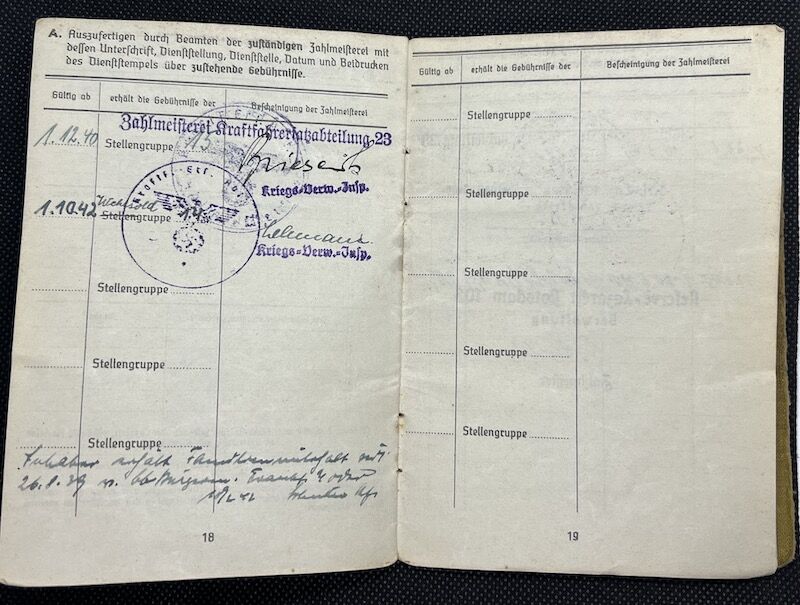 A. Auszufertigen durch Beamten der zuständigen Zahlmeisterei mit
dessen Unterschrift, Dienststellung, Dienststelle, Datum und Beidrucken
des Dienststempels über zustehende Gebührnisse.
Gültig ab
erhält die Gebührnisse der
Bescheinigung der Zahlmeisterei
Zahlmeisterei Kraftfahrersatzabteilung 23
1.12.40
Stellengruppe 15
Kriegs-Verw.-Insp.
1.10.42
Wehrsold
Stellengruppe 14
Lehmann
Kriegs-Verw.-Insp.
Stellengruppe
Stellengruppe
Stellengruppe
Inhaber erhält Familienunterhalt seit
26.8.39
18
Gültig ab
erhält die Gebührnisse der
Bescheinigung der Zahlmeisterei
Stellengruppe
Stellengruppe
Stellengruppe
Stellengruppe
Stellengruppe
19